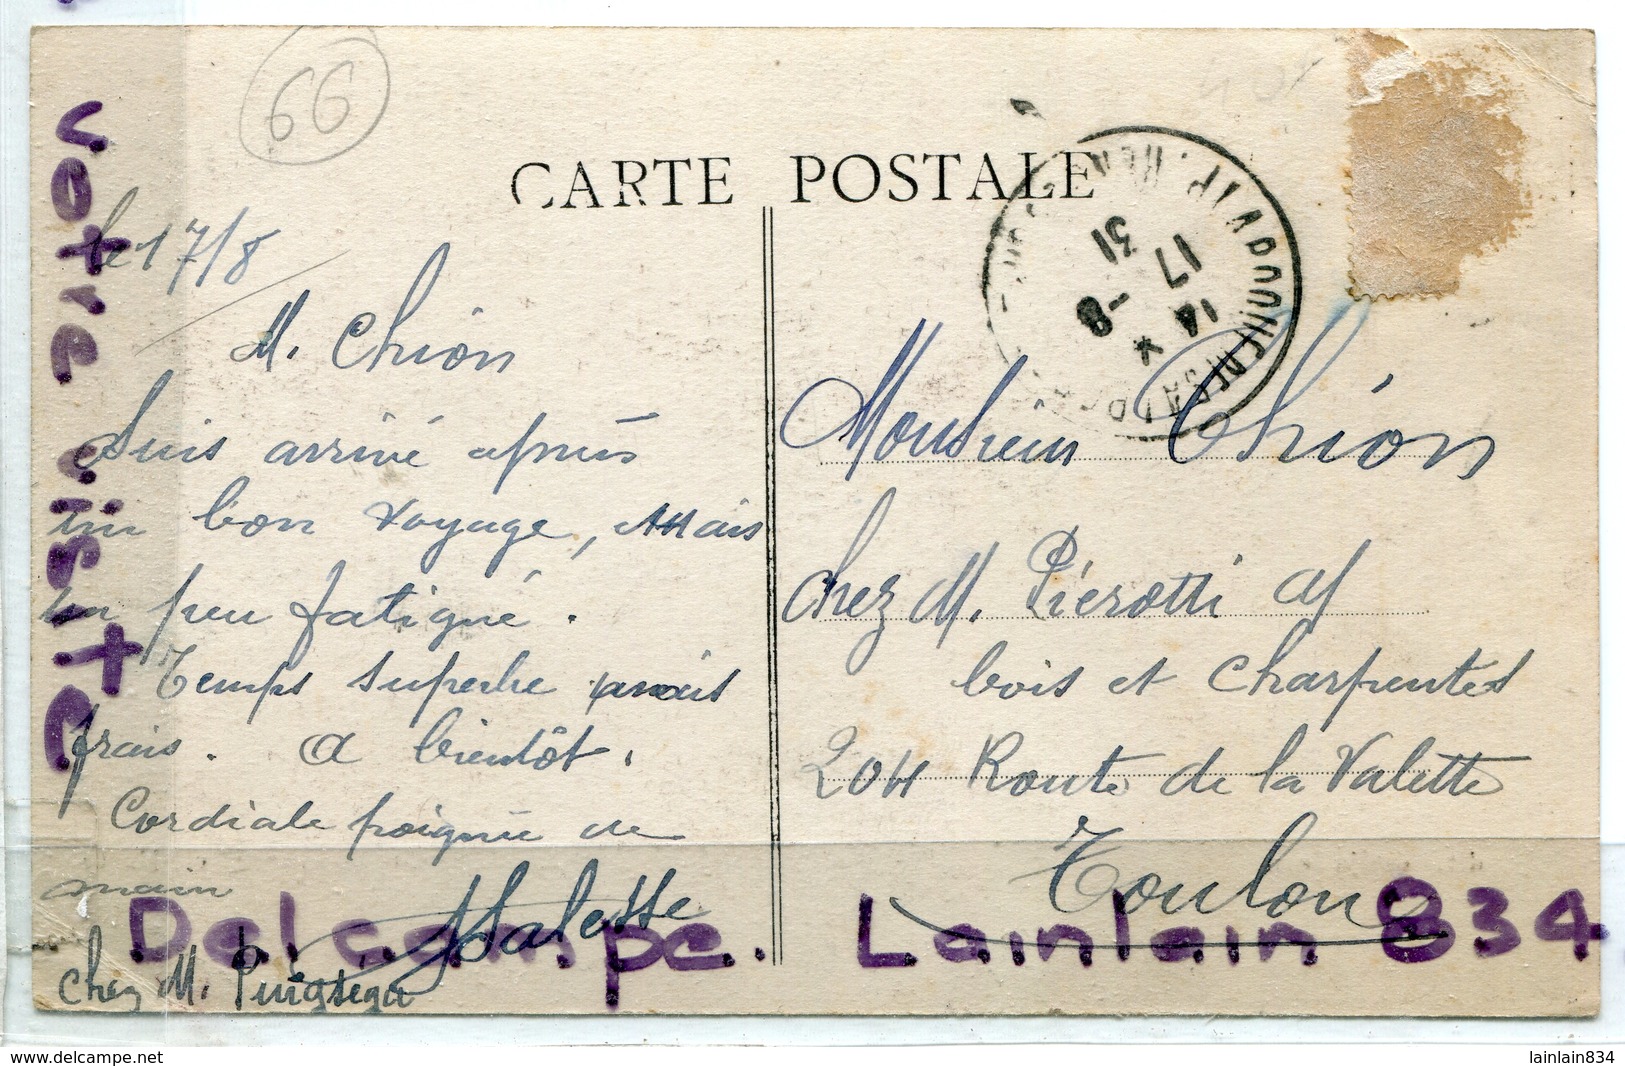 66
CARTE POSTALE
le 17/8
M. Chion
Suis arrivé après
un bon voyage, mais
un peu fatigué.
Temps superbe mais
frais. A bientôt.
Cordiale poignée de
main
chez M. Puigségur
14 *
17 -8
31
Monsieur Chion
chez M. Piérotti
bois et Charpentes
204 Route de la Valette
Toulon
votre visite
Delcampe. Lainlain 834
www.delcampe.net
lainlain834